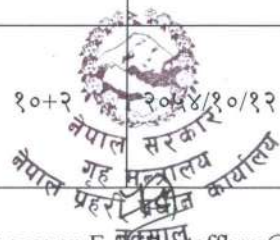 १०+२
२०५४/१०/१२
नेपाल सरकार
गृह मन्त्रालय
नेपाल प्रहरी प्रधान कार्यालय
नक्साल